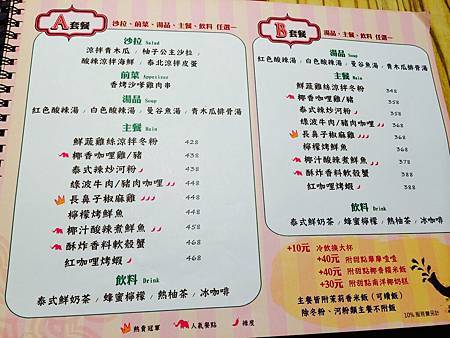 A 套餐 沙拉、前菜、湯品、主餐、飲料 任選一
沙拉 Salad
涼拌青木瓜 / 柚子公主沙拉 /
酸辣涼拌海鮮 / 泰北涼拌皮蛋
前菜 Appetizer
香烤沙嗲雞肉串
湯品 Soup
紅色酸辣湯 / 白色酸辣湯 / 曼谷魚湯 / 青木瓜排骨湯
主餐 Main
鮮蔬雞絲涼拌冬粉 428
椰香咖哩雞/豬 438
泰式辣炒河粉 438
綠波牛肉/豬肉咖哩 448
長鼻子椒麻雞 448
檸檬烤鮮魚 448
椰汁酸辣煮鮮魚 458
酥炸香料軟殼蟹 468
紅咖哩烤蝦 468
飲料 Drink
泰式鮮奶茶 / 蜂蜜檸檬 / 熱柚茶 / 冰咖啡
熱賣冠軍 人氣餐點 辣度
B 套餐 湯品、主餐、飲料 任選一
湯品 Soup
紅色酸辣湯 / 白色酸辣湯 / 曼谷魚湯 / 青木瓜排骨湯
主餐 Main
鮮蔬雞絲涼拌冬粉 348
椰香咖哩雞/豬 358
泰式辣炒河粉 358
綠波牛肉/豬肉咖哩 368
長鼻子椒麻雞 368
檸檬烤鮮魚 368
椰汁酸辣煮鮮魚 378
酥炸香料軟殼蟹 388
紅咖哩烤蝦 388
飲料 Drink
泰式鮮奶茶 / 蜂蜜檸檬 / 熱柚茶 / 冰咖啡
+10元 冷飲換大杯
+40元 附甜點摩摩喳喳
+40元 附甜點椰香糯米飯
+30元 附甜點南洋椰奶糕
主餐皆附茉莉香米飯(可續飯)
除冬粉、河粉類主餐不附飯
10% 服務費另計